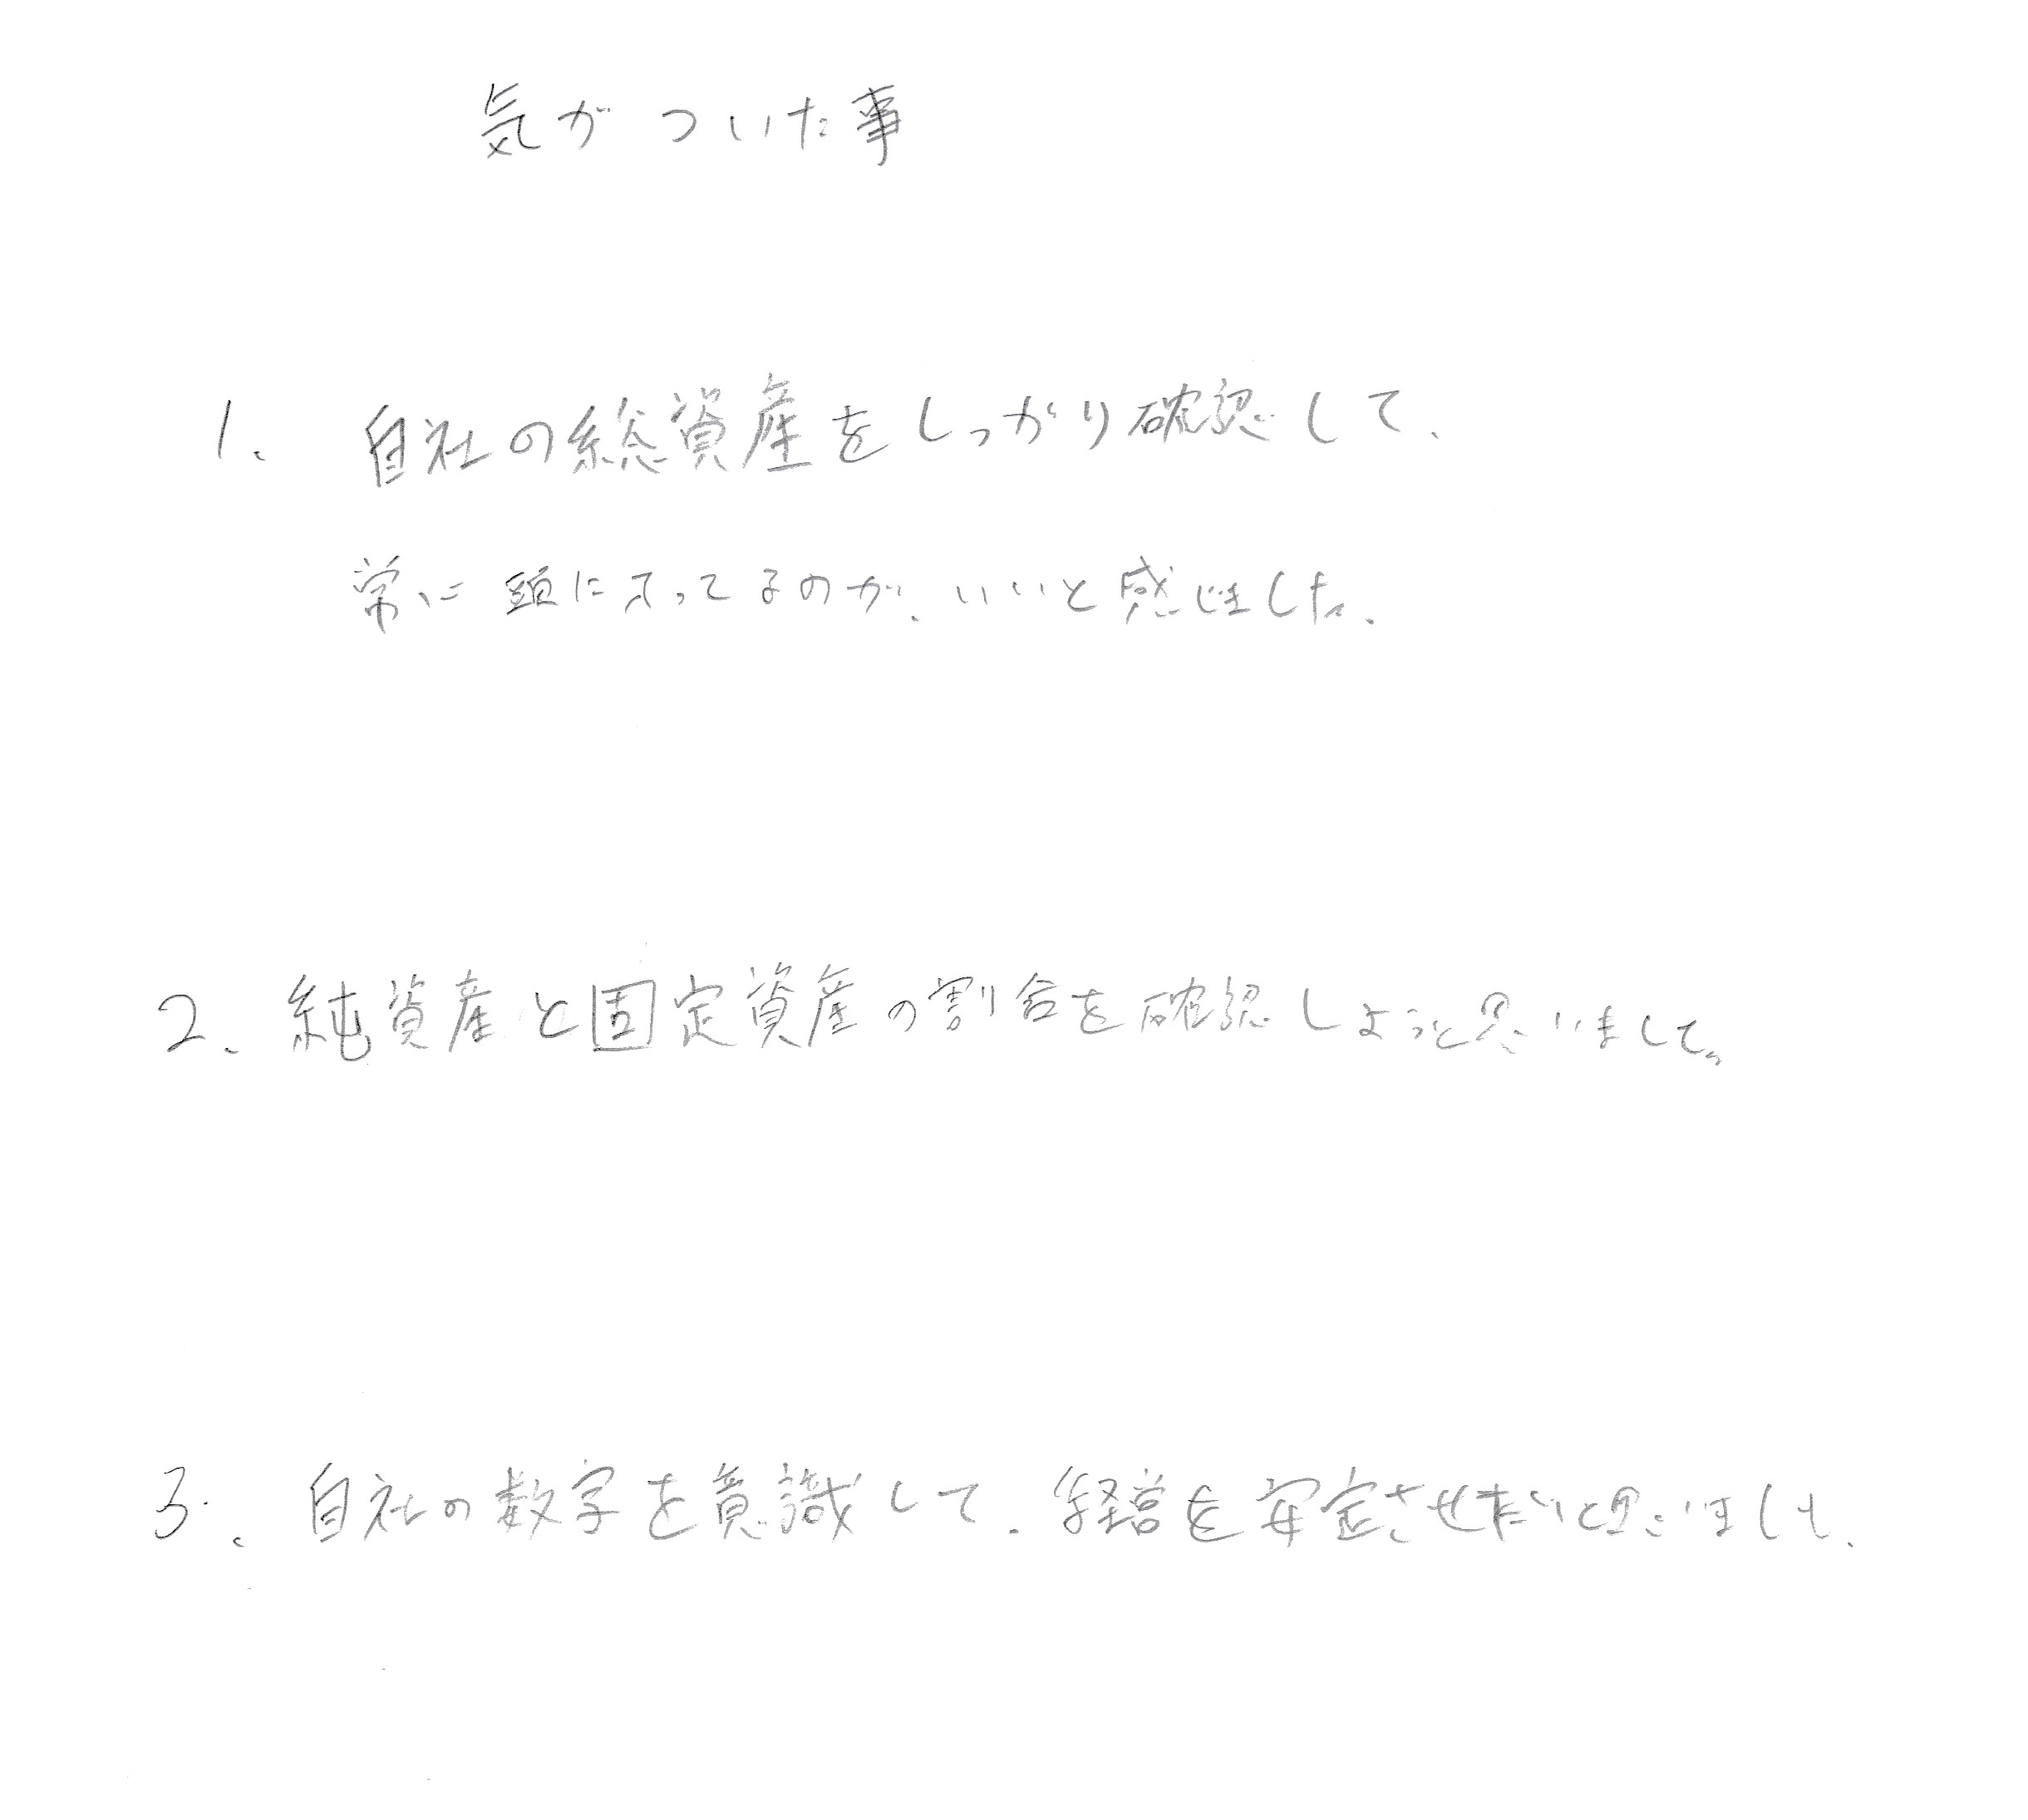 気がついた事
1、自社の総資産をしっかり確認して、
常に頭に入ってるのが、いいと感じました。
2、純資産と固定資産の割合を確認しようと思いまして。
3、自社の数字を意識して、経営を安定させたいと思いました、